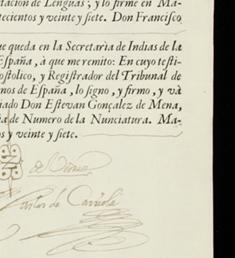 tacion de Lenguas; y lo firme en Ma-
tecientos y veinte y siete. Don Francisco
ue queda en la Secretaria de Indias de la
España, à que me remito: En cuyo testi-
ostolico, y Registrador del Tribunal de
nos de España, lo signo, y firmo, y và
iado Don Estevan Gonçalez de Mena,
ia de Numero de la Nunciatura. Ma-
os y veinte y siete.